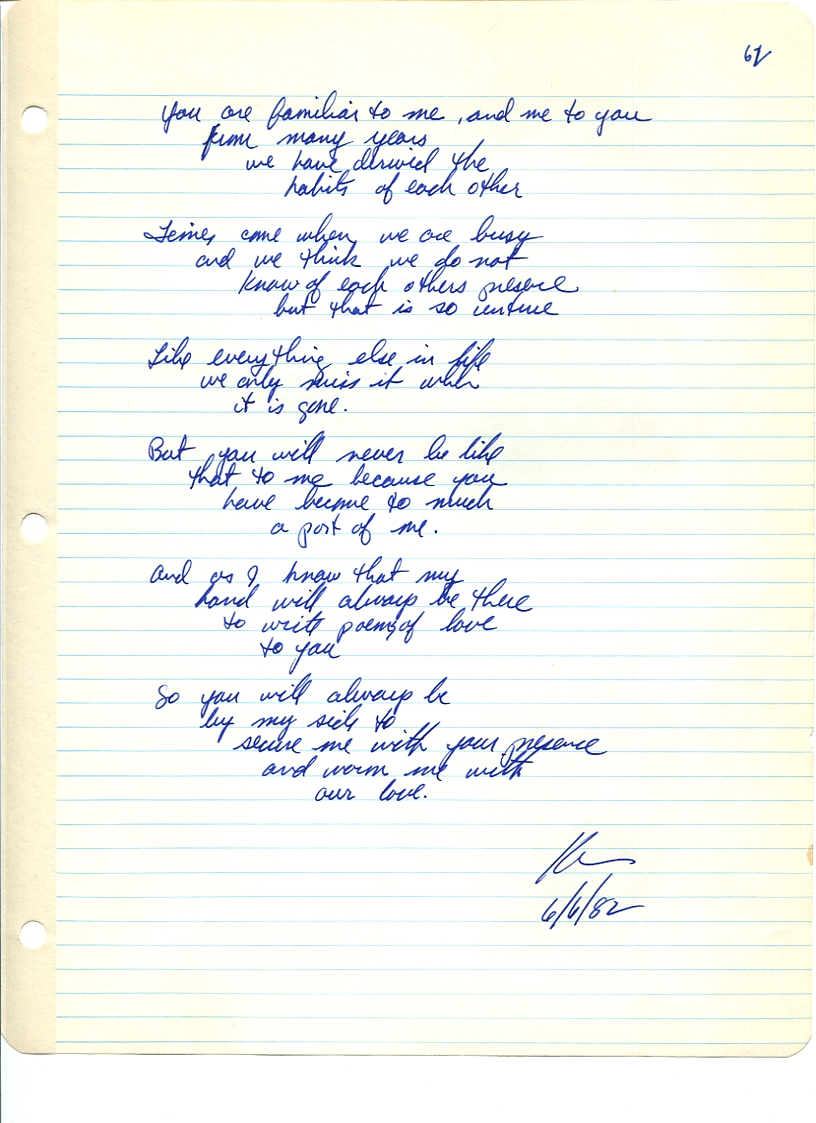 62
You are familiar to me, and me to you
from many years
we have derived the
habits of each other
Times come when we are busy
and we think we do not
know of each others presence
but that is so untrue
Like everything else in life
we only miss it when
it is gone.
But you will never be like
that to me because you
have become to much
a part of me.
And as I know that my
hand will always be there
to write poems of love
to you
So you will always be
by my side to
secure me with your presence
and warm me with
our love.
6/6/82